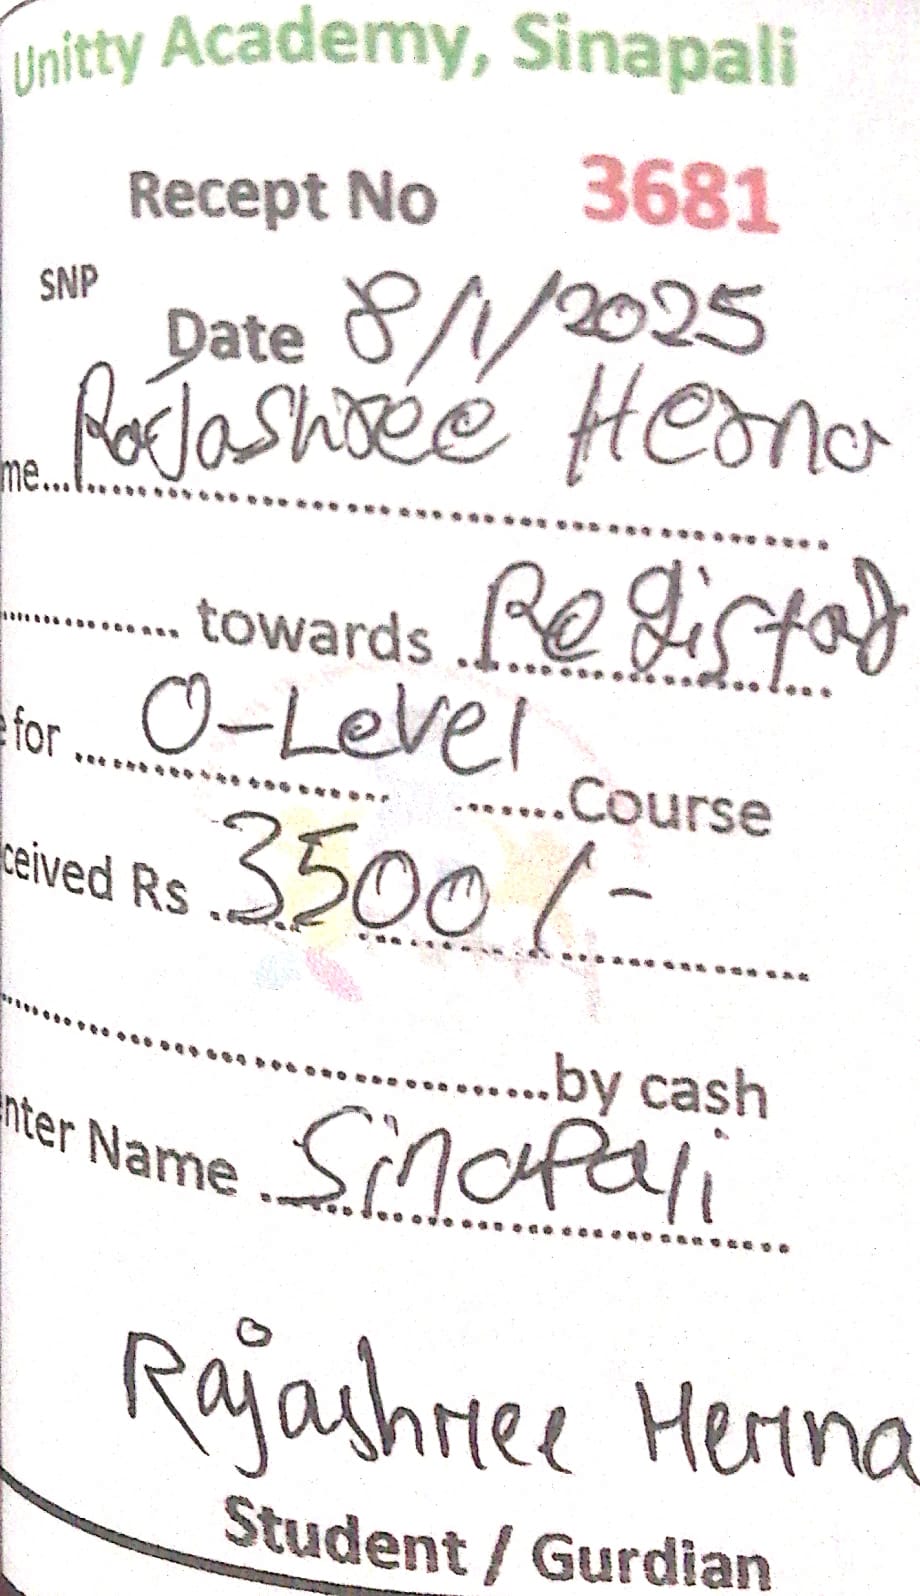 Unitty Academy, Sinapali
Recept No 3681
SNP
Date 8/1/2025
me... Rajashree Herna
............... towards .. Registad
for .... O-Level
.......Course
ceived Rs .3500/-
...............by cash
nter Name . Sinapali
Rajashree Herna
Student / Gurdian